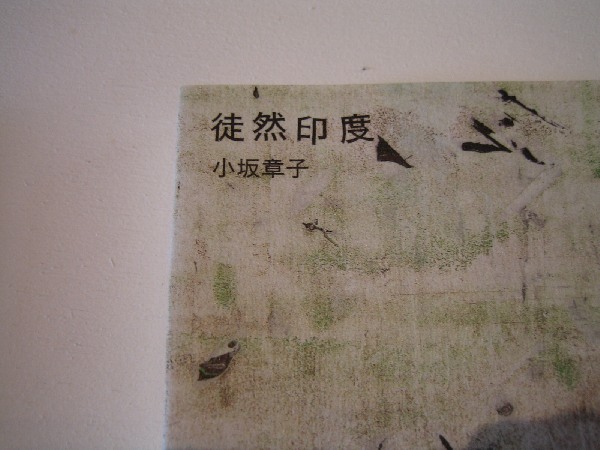 徒然印度
小坂章子